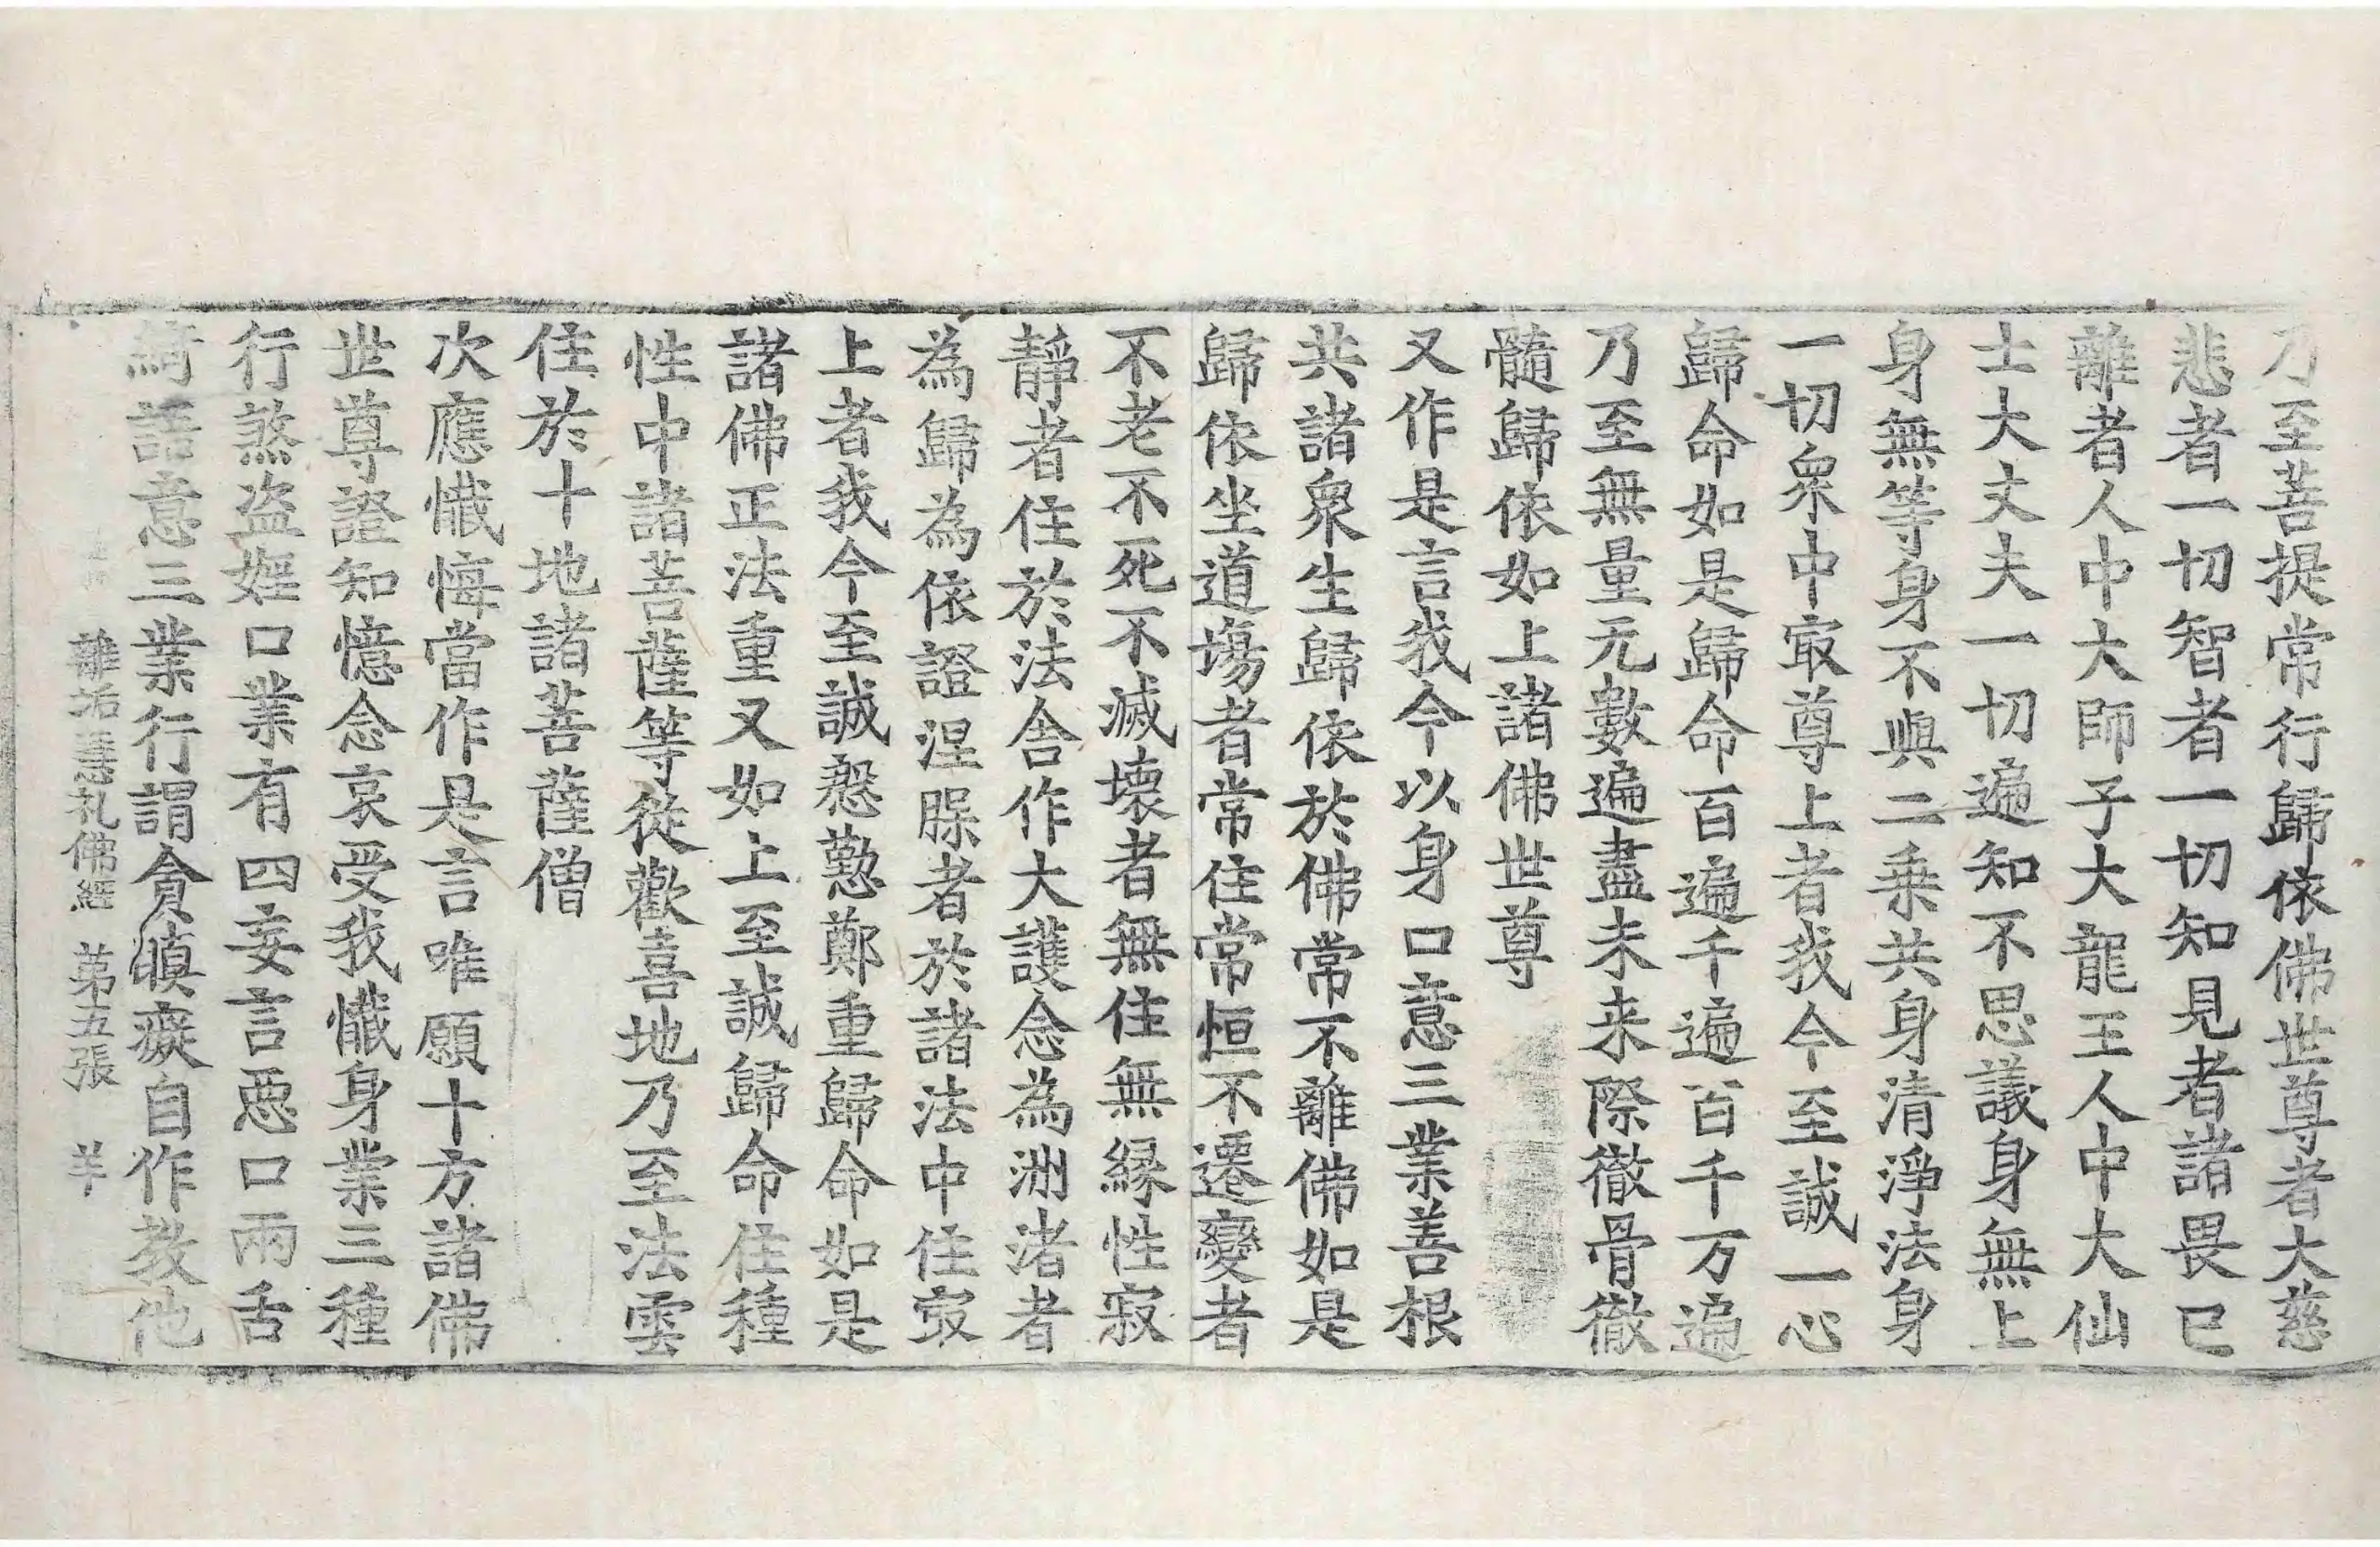 乃至菩提常行歸依佛世尊者大慈
悲者一切智者一切知見者諸畏已
離者人中大師子大龍王人中大仙
士大丈夫一切遍知不思議身無上
身無等身不與二乗共身清淨法身
一切衆中㝡尊上者我今至誠一心
歸命如是歸命百遍千遍百千万遍
乃至無量无數遍盡未来際徹骨徹
髓歸依如上諸佛世尊
又作是言我今以身口意三業善根
共諸衆生歸依於佛常不離佛如是
歸依坐道塲者常住常恒不遷變者
不老不死不滅壞者無住無縁性寂
靜者住於法舍作大護念為洲渚者
為歸為依證涅槃者於諸法中住㝡
上者我今至誠慇懃鄭重歸命如是
諸佛正法重又如上至誠歸命住種
性中諸菩薩等從歡喜地乃至法雲
住於十地諸菩薩僧
次應懺悔當作是言唯願十方諸佛
世尊證知憶念哀受我懺身業三種
行煞盗婬口業有四妄言惡口兩舌
綺語意三業行謂貪瞋癡自作教他
離垢慧礼佛經 第五張 羊